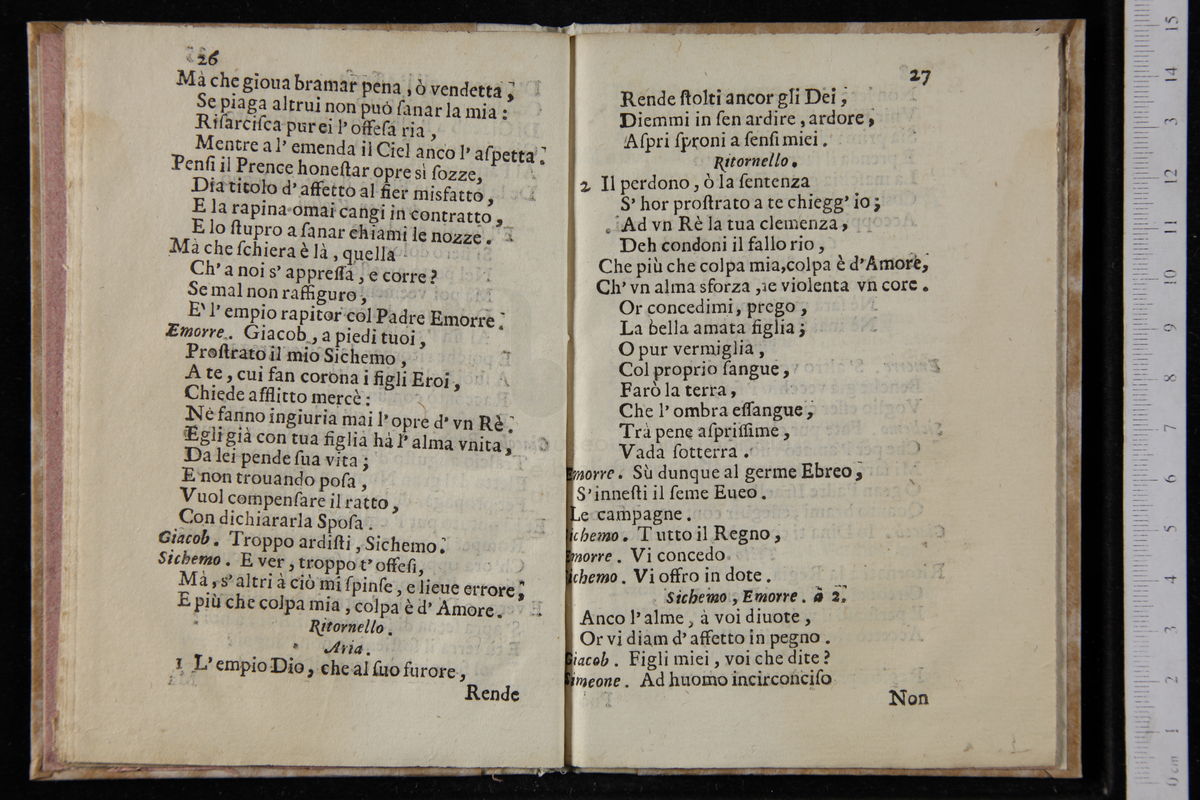 26
Mà che gioua bramar pena, ò vendetta,
Se piaga altrui non può ſanar la mia:
Riſarciſca pur ei l'offeſa ria,
Mentre a l'emenda il Ciel anco l'aſpetta.
Penſi il Prence honeſtar opre sì ſozze,
Dia titolo d'affetto al fier misfatto,
E la rapina omai cangi in contratto,
E lo ſtupro a ſanar chiami le nozze.
Mà che ſchiera è là, quella
Ch'a noi s'appreſſa, e corre?
Se mal non raffiguro,
E' l'empio rapitor col Padre Emorre.
Emorre. Giacob, a piedi tuoi,
Proſtrato il mio Sichemo,
A te, cui fan corona i figli Eroi,
Chiede afflitto mercè:
Nè fanno ingiuria mai l'opre d'vn Rè.
Egli già con tua figlia hà l'alma vnita,
Da lei pende ſua vita;
E non trouando poſa,
Vuol compenſare il ratto,
Con dichiararla Spoſa.
Giacob. Troppo ardiſti, Sichemo.
Sichemo. E ver, troppo t'offeſi,
Mà, s'altri à ciò mi ſpinſe, e lieue errore;
E più che colpa mia, colpa è d'Amore.
Ritornello.
Aria.
1 L'empio Dio, che al ſuo furore,
Rende
27
Rende ſtolti ancor gli Dei,
Diemmi in ſen ardire, ardore,
Aſpri ſproni a ſenſi miei.
Ritornello.
2 Il perdono, ò la ſentenza
S'hor proſtrato a te chiegg'io;
Ad vn Rè la tua clemenza,
Deh condoni il fallo rio,
Che più che colpa mia, colpa è d'Amore,
Ch'vn alma sforza, e violenta vn core.
Or concedimi, prego,
La bella amata figlia;
O pur vermiglia,
Col proprio ſangue,
Farò la terra,
Che l'ombra eſſangue,
Trà pene aſpriſſime,
Vada ſotterra.
Emorre. Sù dunque al germe Ebreo,
S'inneſti il ſeme Eueo.
Le campagne.
Sichemo. Tutto il Regno,
Emorre. Vi concedo.
Sichemo. Vi offro in dote.
Sichemo, Emorre. à 2.
Anco l'alme, à voi diuote,
Or vi diam d'affetto in pegno.
Giacob. Figli miei, voi che dite?
Simeone. Ad huomo incirconciſo
Non